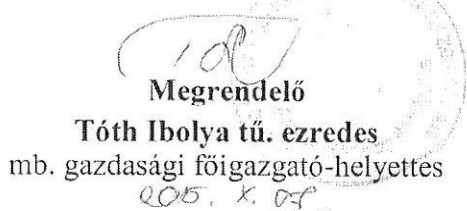 Megrendelő
Tóth Ibolya tű. ezredes
mb. gazdasági főigazgató-helyettes